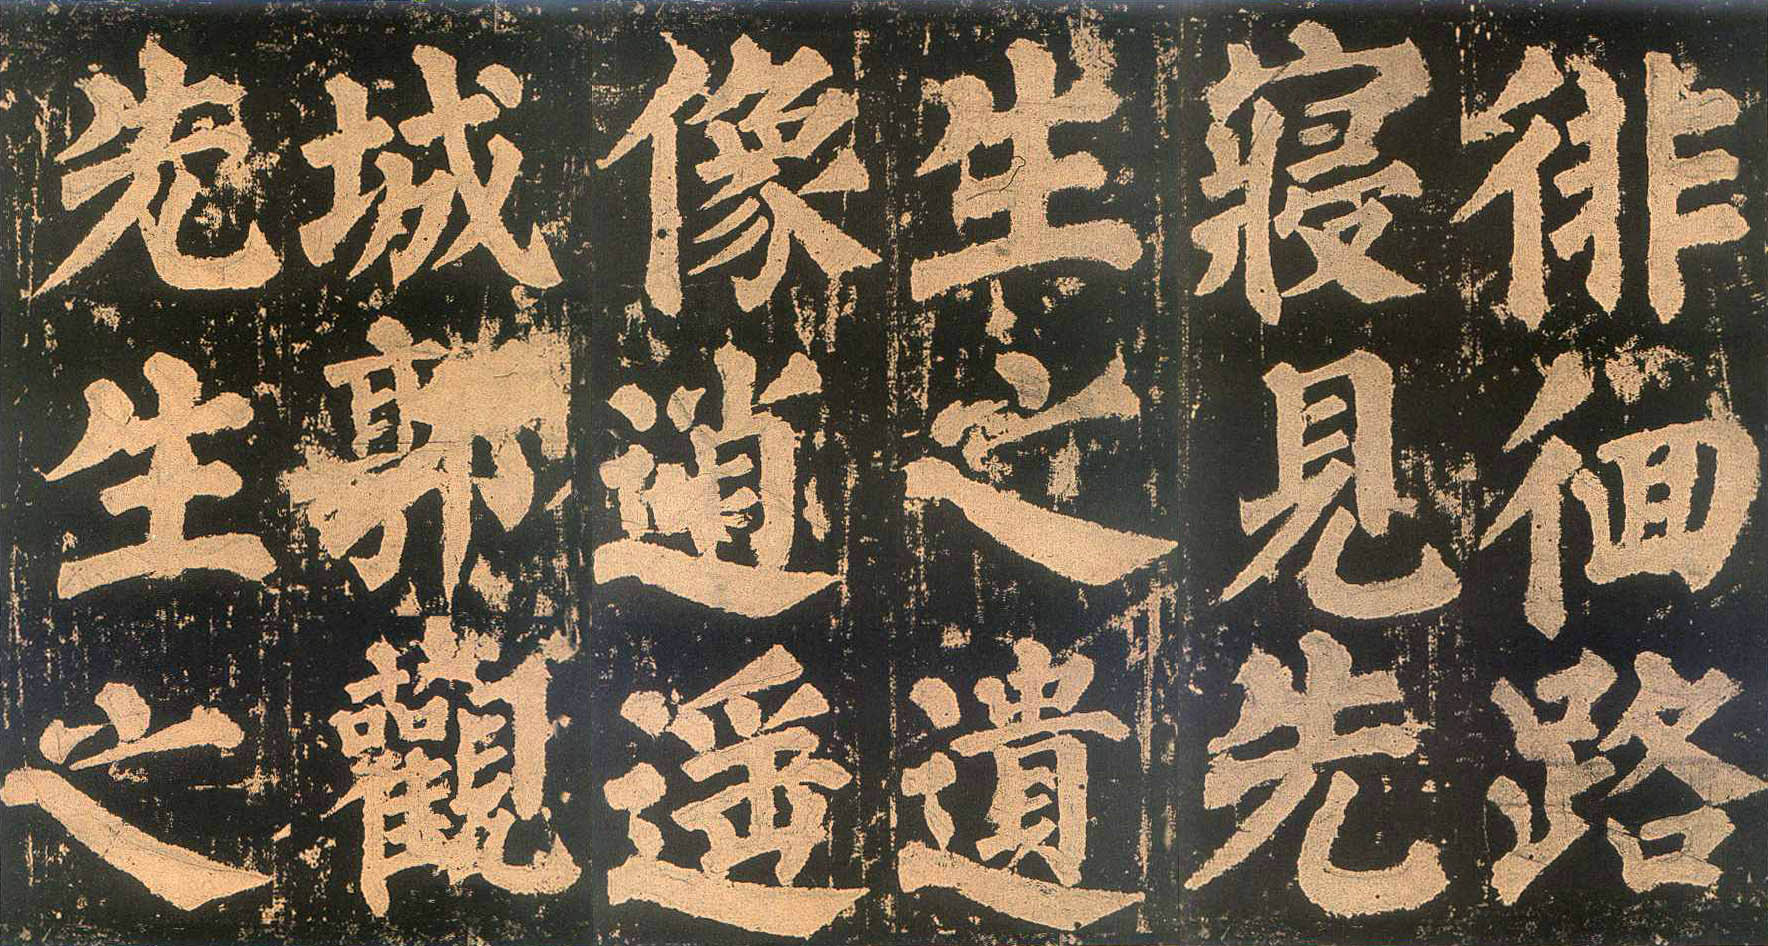 徘徊路
寢見先
生之遺
像逍遥
城郭觀
先生之